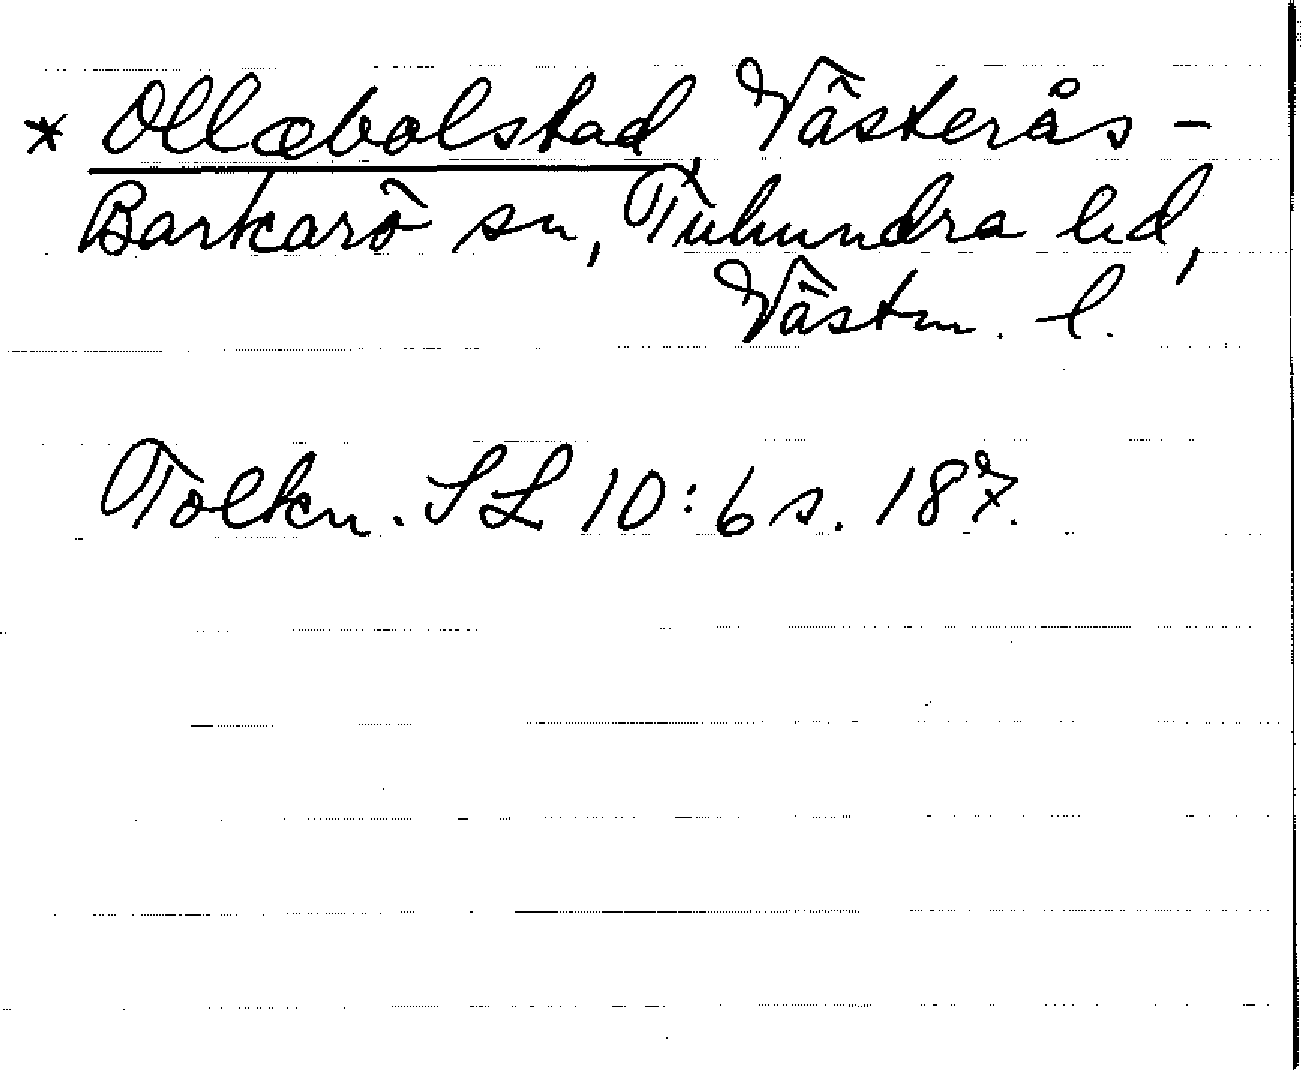 * Ollæbolstad Västerås-
Barkarö sn, Tuhundra hd,
Västm. l.
Tolkn. SL 10:6 s. 187.